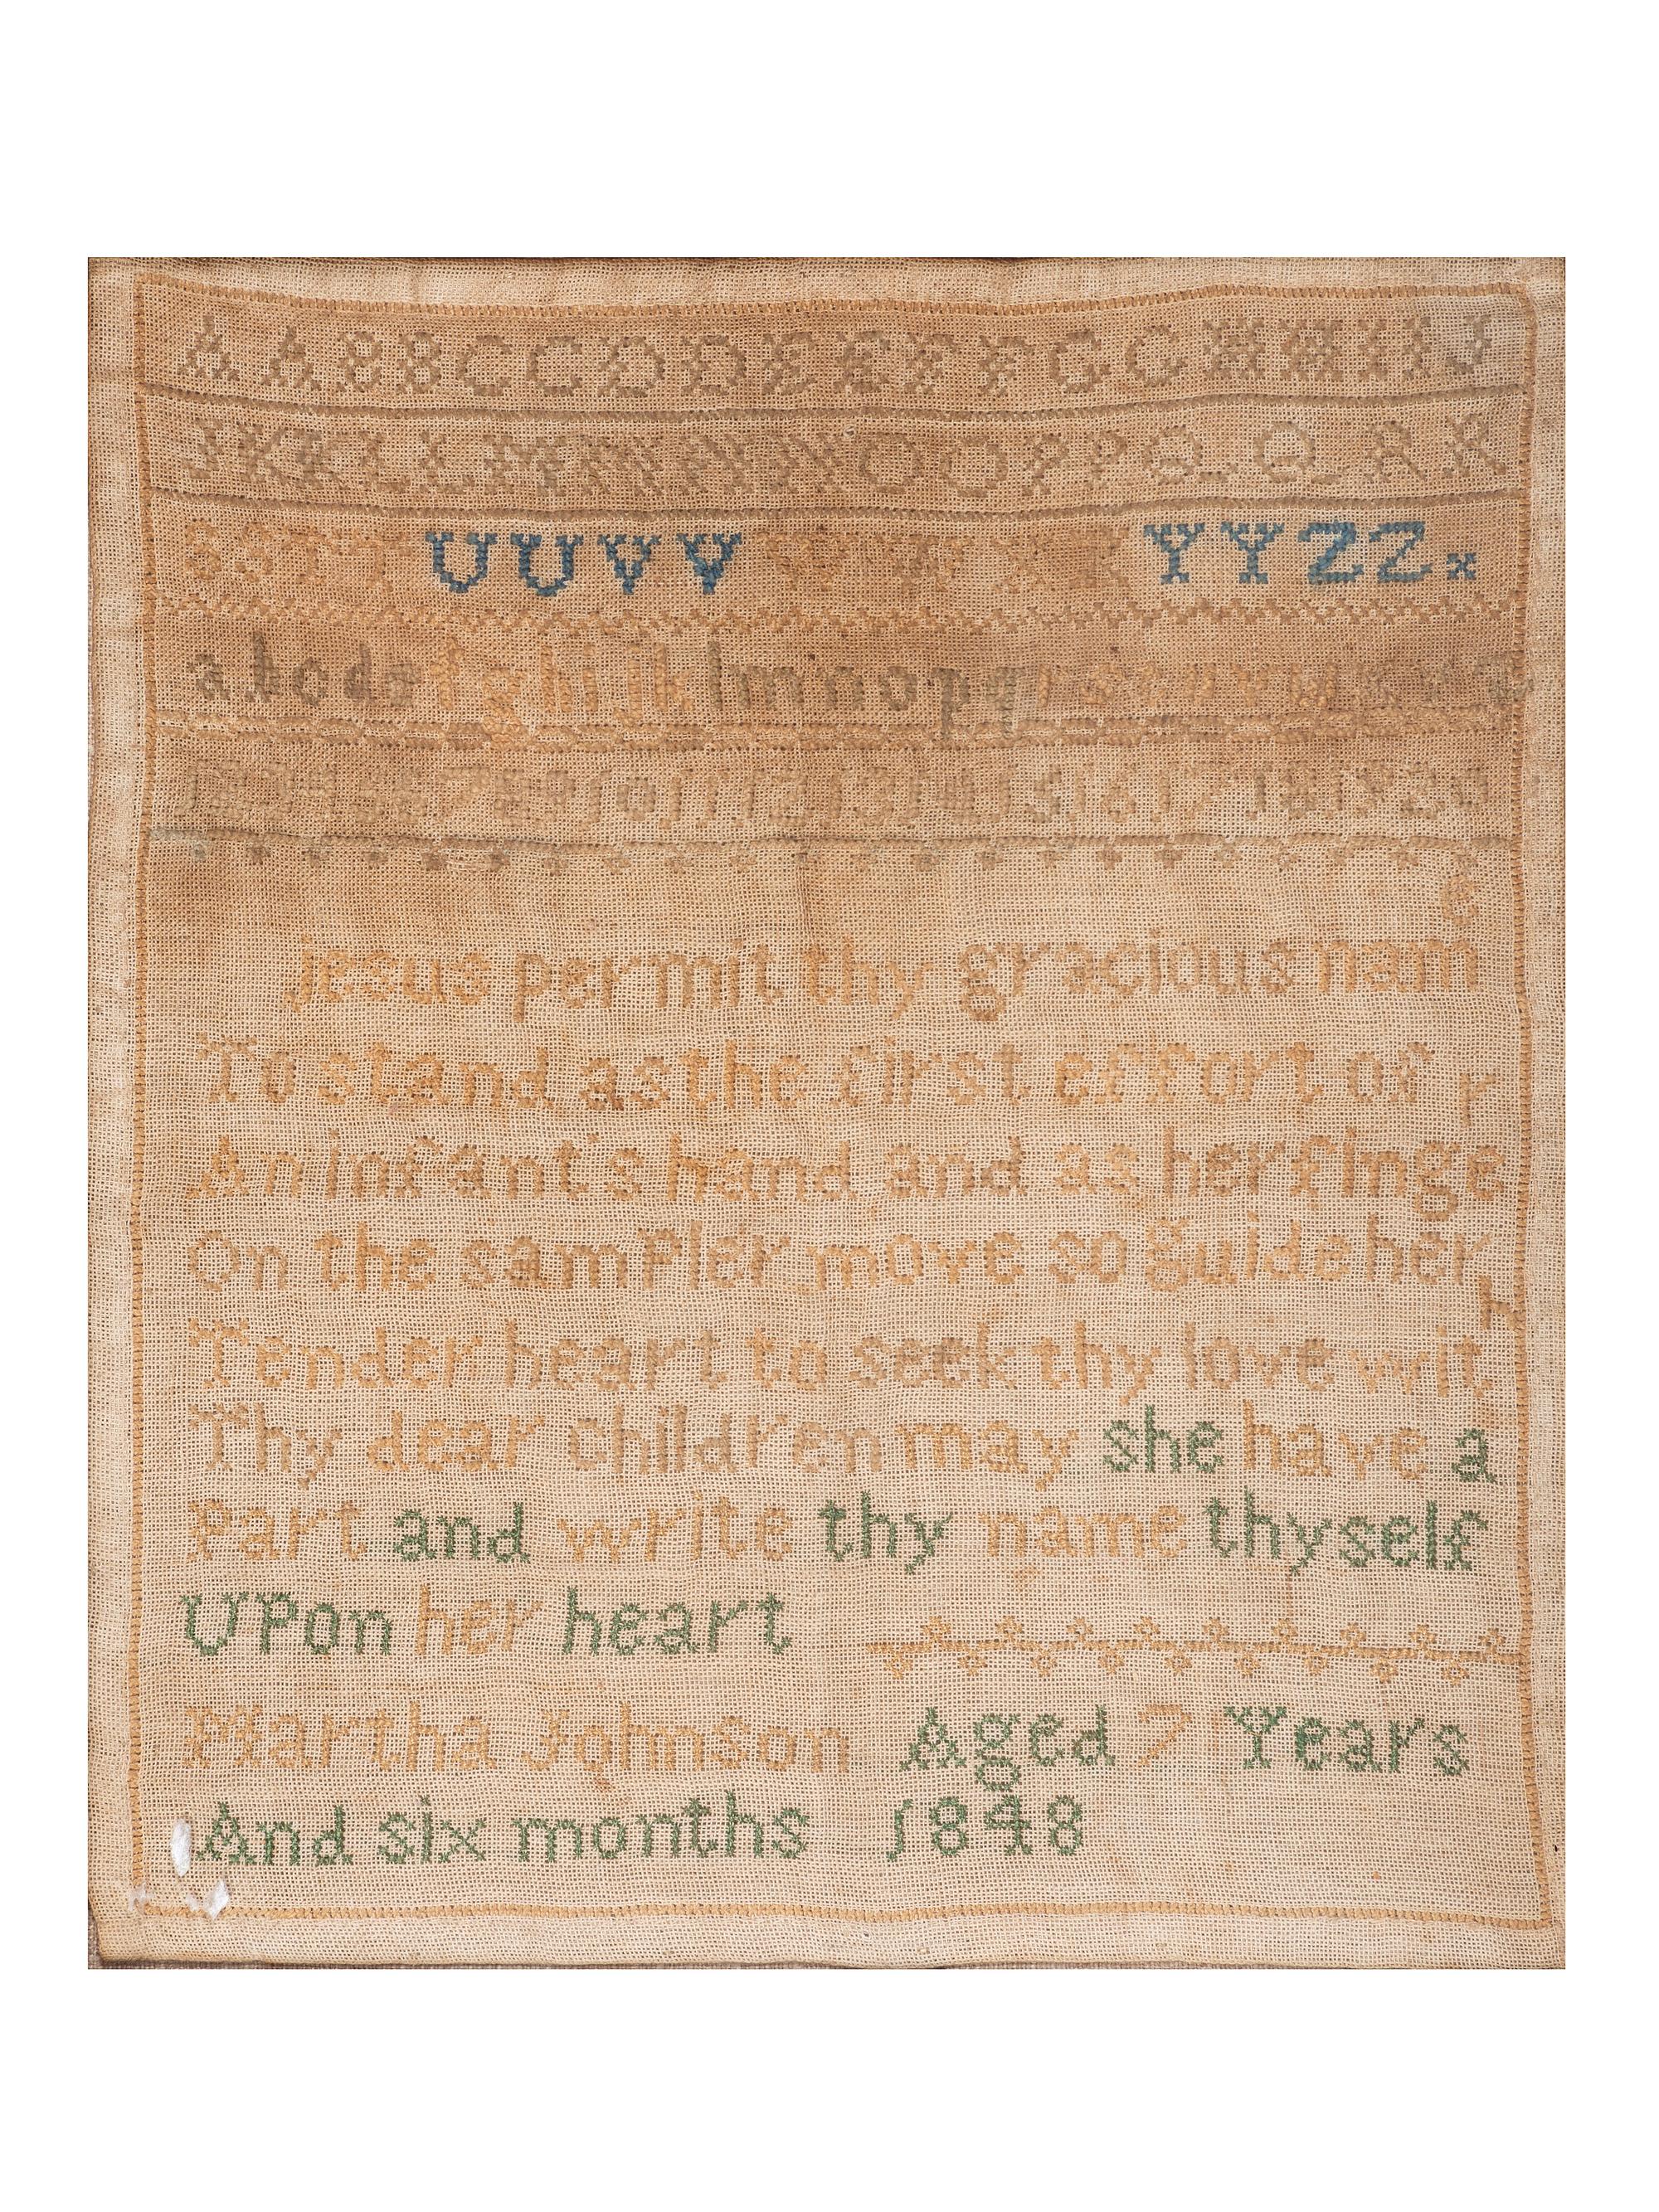 A A B B C C D D E E F F G G H H I I J
J K K L L M M N N O O P P Q Q R R
S S T T U U V V W W X X Y Y Z Z
a b c d e f g h i j k l m n o p q r s t u v w x y z
1 2 3 4 5 6 7 8 9 10 11 12 13 14 15 16 17 18 19 20
jesus permit thy gracious name
To stand as the first effort of
An infant's hand and as her finger
On the sampler move so guide her
Tender heart to seek thy love with
Thy dear children may she have a
Part and write thy name thyself
UPon her heart
Martha Johnson Aged 7 Years
And six months 1848